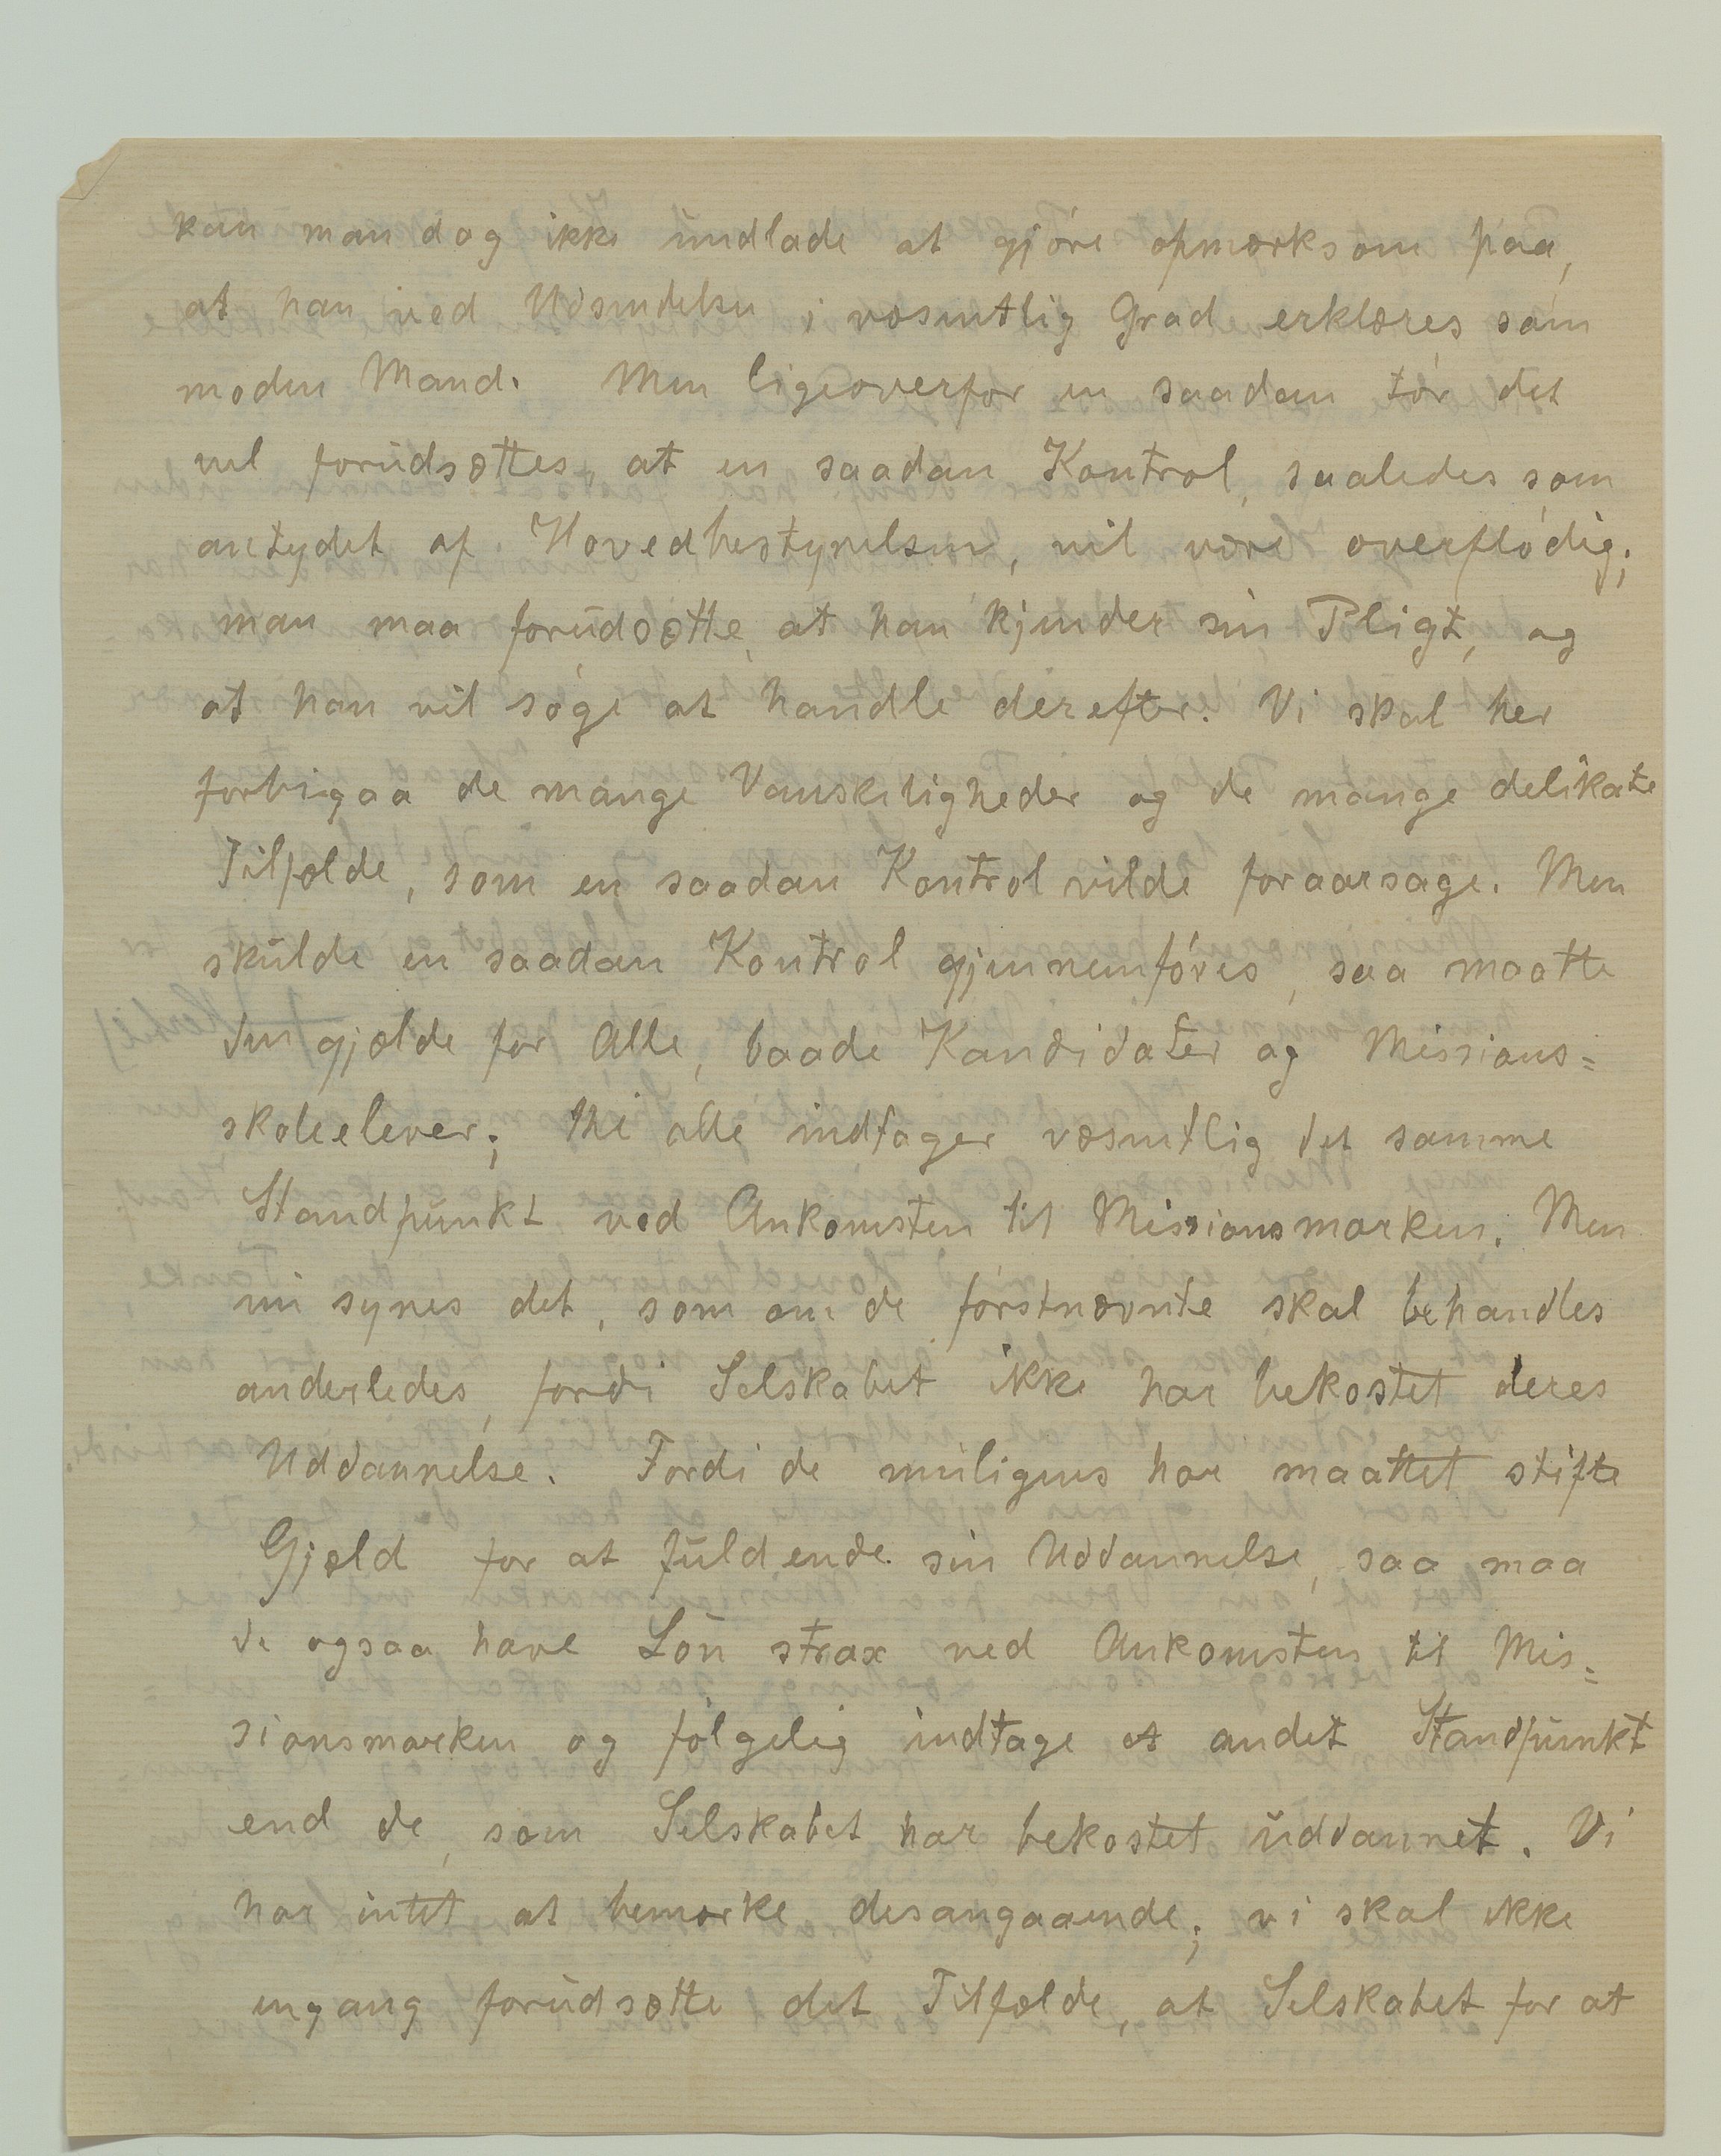 kan man dog ikke undlade at gjöre opmærksom paa,
at han ved Udsendelsen i væsentlig Grad erklæres som
moden Mand. Men ligeoverfor en saadan tör det
vel forudsættes, at en saadan Kontrol, saaledes som
antydet af Hovedbestyrelsen, vil være overflödig;
man maa forudsætte, at han kjender sin Pligt, og
at han vil söge at handle derefter. Vi skal her
forbigaa de mange Vanskeligheder og de mange delikate
Tilfælde, som en saadan Kontrol vilde foraarsage. Men
skulde en saadan Kontrol gjennemföres, saa maatte
den gjælde for Alle, baade Kandidater og Missions=
skoleelever; thi alle indtager væsentlig det samme
Standpunkt ved Ankomsten til Missionsmarken. Men
nu synes det, som om de förstnævnte skal behandles
anderledes, fordi Selskabet ikke har bekostet deres
Uddannelse. Fordi de muligens har maattet stifte
Gjæld for at fuldende sin Uddannelse, saa maa
de ogsaa have Lön strax ved Ankomsten til Mis=
sionsmarken og fölgelig indtage et andet Standpunkt
end de, som Selskabet har bekostet uddannet. Vi
har intet at bemærke desangaaende; vi skal ikke
engang forudsætte det Tilfælde, at Selskabet for at